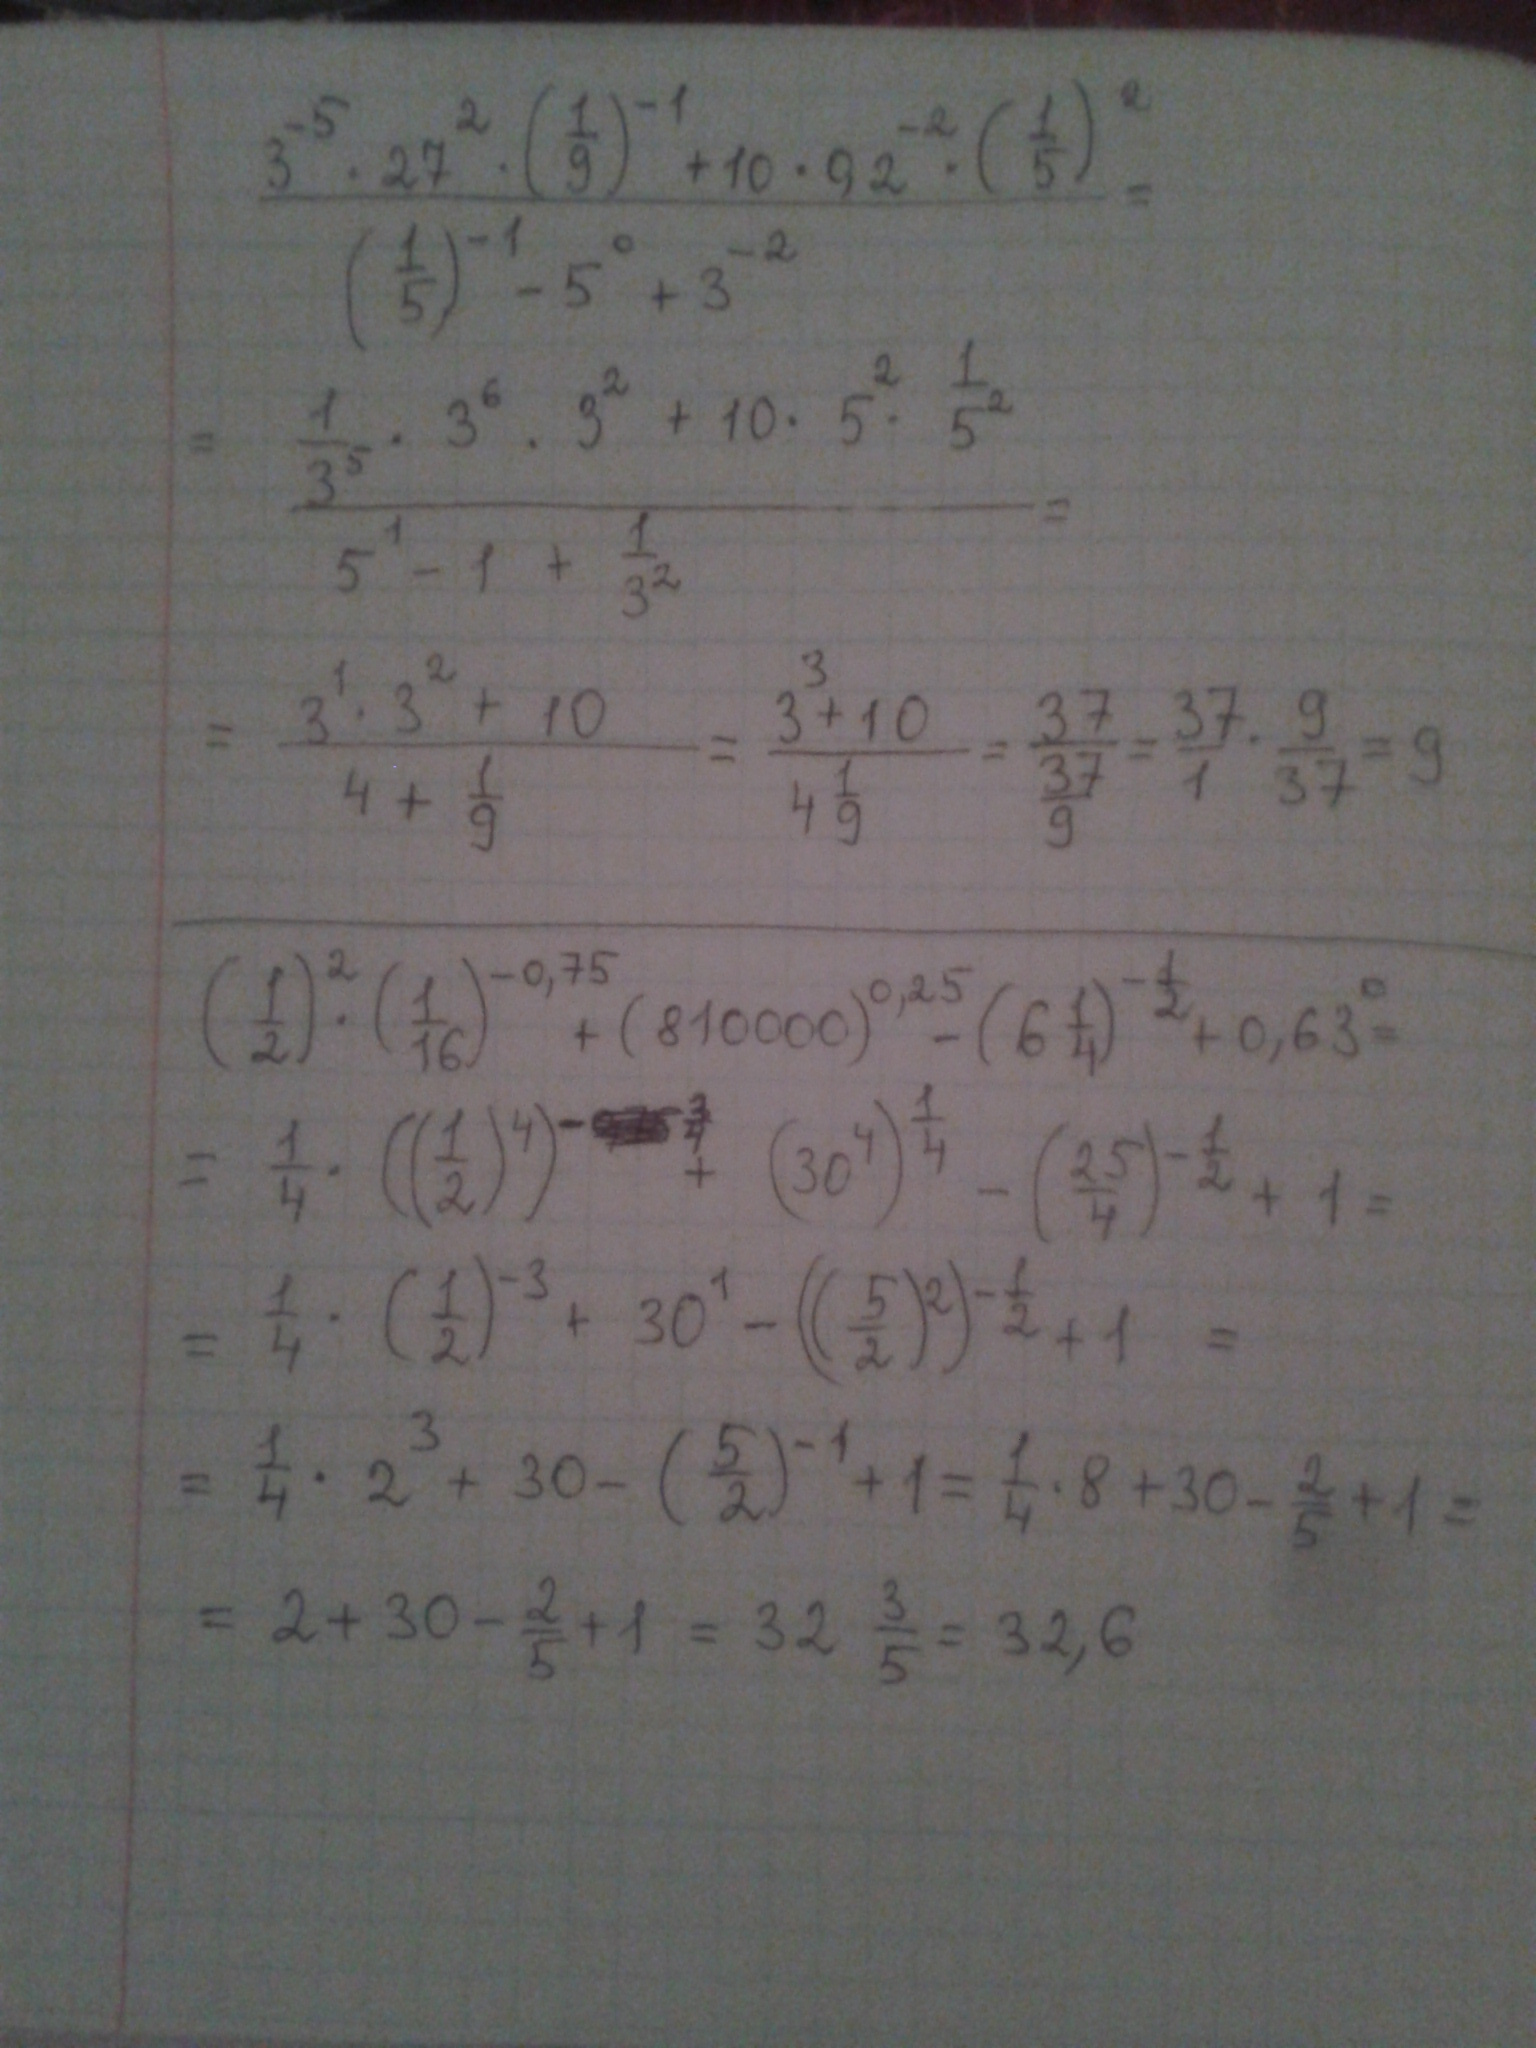 (3^-5 · 27^2 · (1/9)^-1 + 10 · 92^-2 · (1/5)^2) / ((1/5)^-1 - 5^0 + 3^-2) =
= (1/3^5 · 3^6 · 3^2 + 10 · 5^2 · 1/5^2) / (5^1 - 1 + 1/3^2) =
= (3^1 · 3^2 + 10) / (4 + 1/9) = (3^3 + 10) / (4 1/9) = 37 / (37/9) = 37/1 · 9/37 = 9
(1/2)^2 · (1/16)^-0,75 + (810000)^0,25 - (6 1/4)^-1/2 + 0,63^0 =
= 1/4 · ((1/2)^4)^-3/4 + (30^4)^1/4 - (25/4)^-1/2 + 1 =
= 1/4 · (1/2)^-3 + 30^1 - ((5/2)^2)^-1/2 + 1 =
= 1/4 · 2^3 + 30 - (5/2)^-1 + 1 = 1/4 · 8 + 30 - 2/5 + 1 =
= 2 + 30 - 2/5 + 1 = 32 3/5 = 32,6